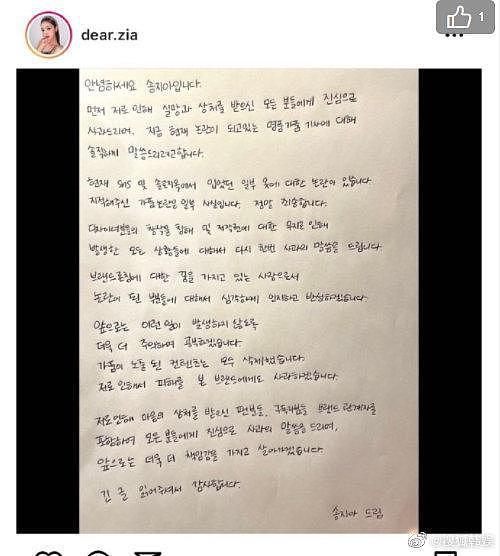 1
dear.zia
안녕하세요 송지아입니다.
먼저 저로 인해 실망과 상처를 받으신 모든 분들에게 진심으로
사과드리며, 지금 현재 논란이 되고있는 명품가품 기사에 대해
솔직하게 말씀드리려고합니다.
현재 SNS 및 솔로지옥에서 입었던 일부 옷에 대한 논란이 있습니다.
지적해주신 가품논란은 일부 사실입니다. 정말 죄송합니다.
디자이너분들의 창작물 침해 및 저작권에 대한 무지로 인해
발생한 모든 상황들에 대해서 다시 한번 사과의 말씀을 드립니다.
브랜드론칭에 대한 꿈을 가지고 있는 사람으로서
논란이 된 부분들에 대해서 심각하게 인지하고 반성하겠습니다.
앞으로는 이런 일이 발생하지 않도록
더욱 더 주의하며 공부하겠습니다.
가품이 노출 된 컨텐츠는 모두 삭제했습니다.
저로 인해서 피해를 본 브랜드에게도 사과하겠습니다.
저로인해 마음의 상처를 받으신 팬분들, 구독자분들 브랜드 관계자를
포함하여 모든 분들에게 진심으로 사과의 말씀을 드리며,
앞으로는 더욱 더 책임감을 가지고 살아가겠습니다.
긴 글 읽어주셔서 감사합니다.
송지아 드림